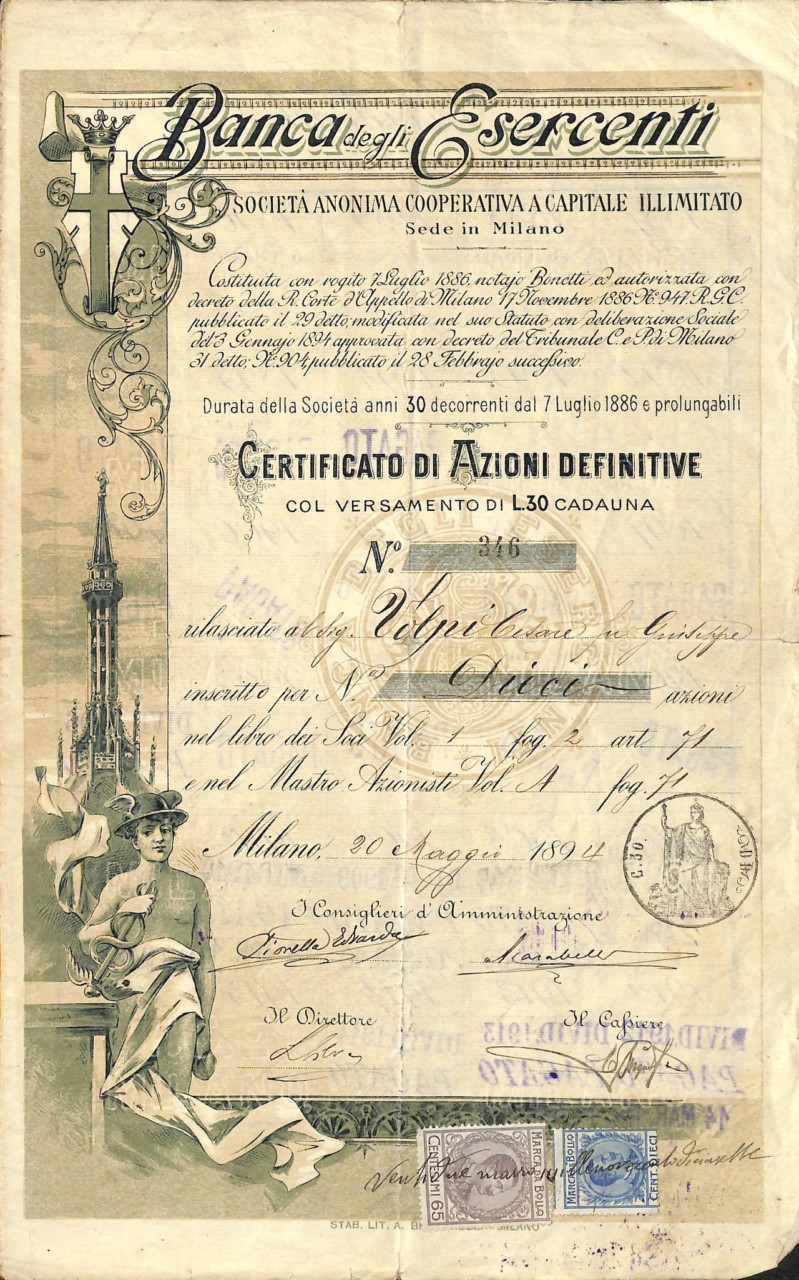 Banca degli Esercenti
SOCIETÀ ANONIMA COOPERATIVA A CAPITALE ILLIMITATO
Sede in Milano
Costituita con rogito 7 Luglio 1886, notajo Bonetti ed autorizzata con
decreto della R. Corte d'Appello di Milano 17 Novembre 1886 No. 947. R.G.C.
pubblicato il 29 detto; modificata nel suo Statuto con deliberazione Sociale
del 3 Gennajo 1894 approvata con decreto del Tribunale C. e P. di Milano
31 detto; No. 904, pubblicato il 28 Febbrajo successivo.
Durata della Società anni 30 decorrenti dal 7 Luglio 1886 e prolungabili
CERTIFICATO DI AZIONI DEFINITIVE
COL VERSAMENTO DI L.30 CADAUNA
No. 346
rilasciato al Sig. Volpi Cesare fu Giuseppe
inscritto per No. Dieci azioni
nel libro dei Soci Vol. 1 fog. 2 art. 71
e nel Mastro Azionisti Vol. A fog. 71
Milano, 20 Maggio 1894
C. 30.
I Consiglieri d'Amministrazione
Il Direttore
Il Cassiere
DIVID. 1912
DIVID. 1913
PAGATO
14 MAR
CENTESIMI 65
MARCA DA BOLLO
MARCA DA BOLLO
CENT. DIECI
STAB. LIT. A. MILANO